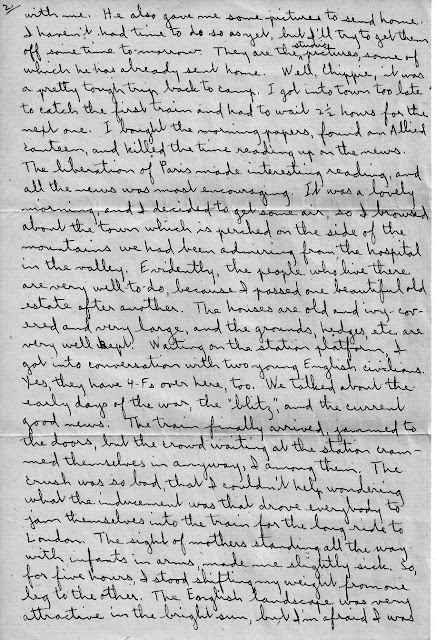 2/
with me. He also gave me some pictures to send home.
I haven't had time to do so as yet, but I'll try to get them
off some time to-morrow. They are the studio pictures, some of
which he has already sent home. Well, Chippie, it was
a pretty tough trip back to camp. I got into town too late
to catch the first train and had to wait 2½ hours for the
next one. I bought the morning papers, found an Allied
canteen, and killed the time reading up on the news.
The liberation of Paris made interesting reading, and
all the news was most encouraging. It was a lovely
morning, and I decided to get some air, so I browsed
about the town which is perched on the side of the
mountains we had been admiring from the hospital
in the valley. Evidently, the people who live there
are very well-to-do, because I passed one beautiful old
estate after another. The houses are old and ivy-cov-
ered and very large, and the grounds, hedges, etc. are
very well kept. Waiting on the station platform, I
got into conversation with two young English civilians.
Yes, they have 4-Fs over here, too. We talked about the
early days of the war, the "blitz", and the current
good news. The train finally arrived, jammed to
the doors, but the crowd waiting at the station cram-
med themselves in anyway, I among them. The
crush was so bad, that I couldn't help wondering
what the inducement was that drove everybody to
jam themselves into the train for the long ride to
London. The sight of mothers standing all the way
with infants in arms, made me slightly sick. So,
for five hours, I stood shifting my weight from one
leg to the other. The English landscape was very
attractive in the bright sun, but I'm afraid I was